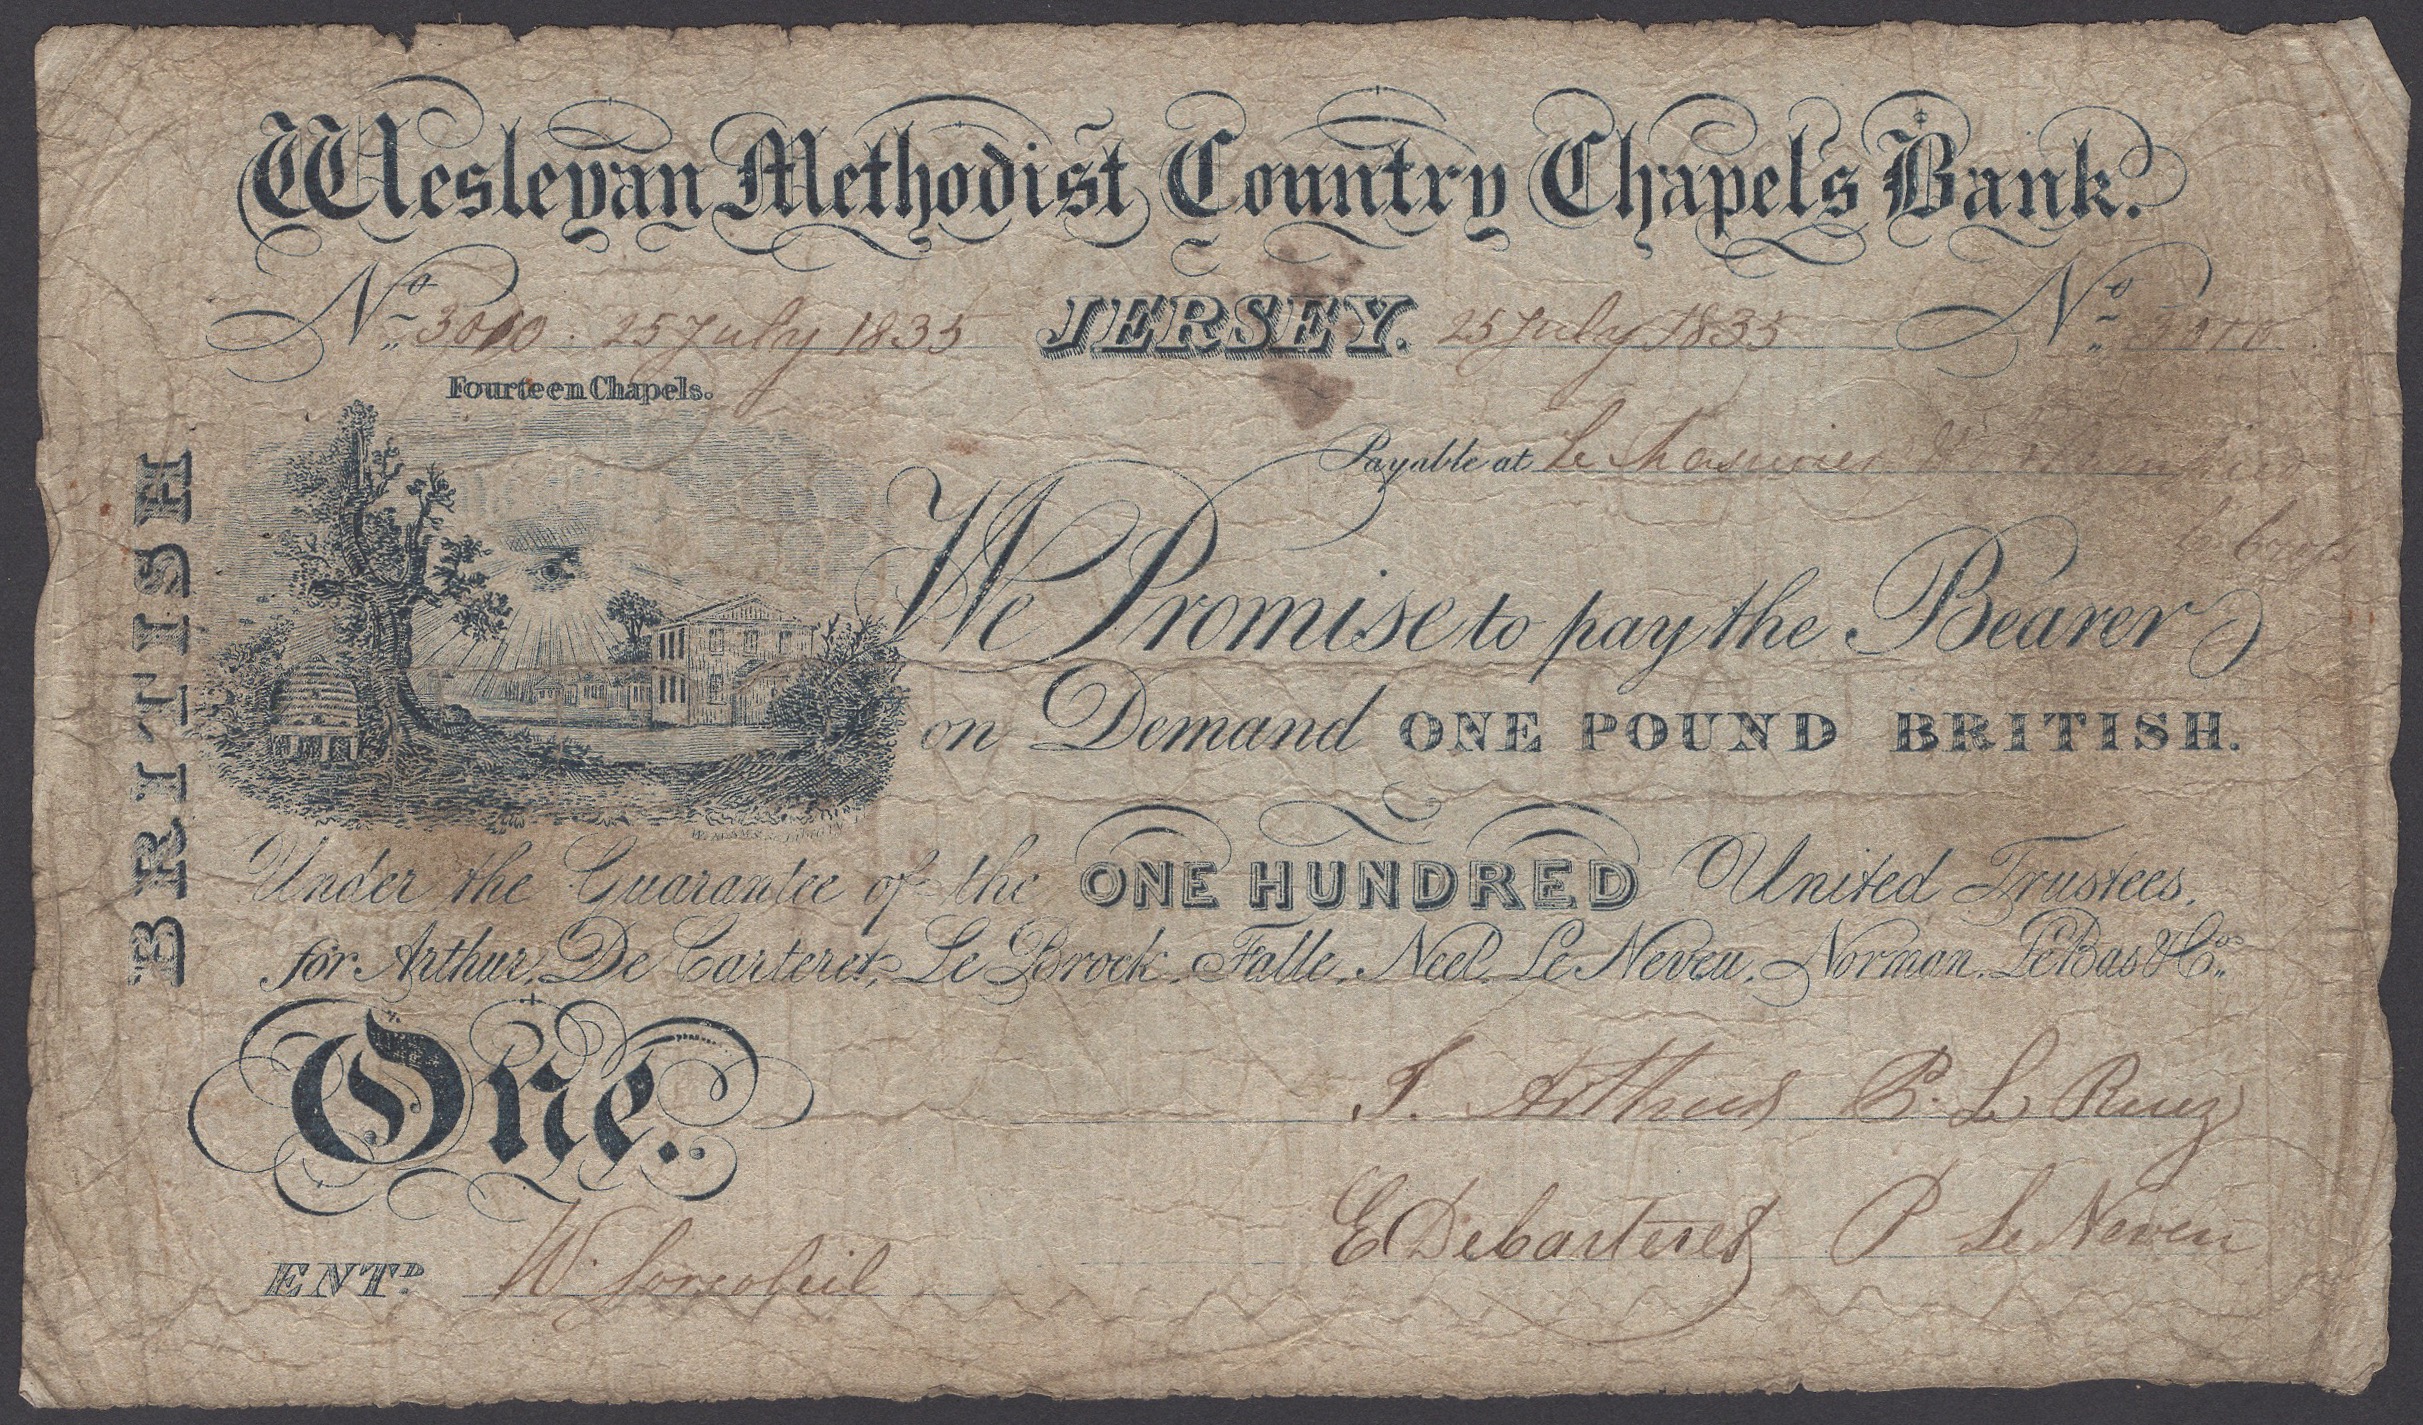 Wesleyan Methodist Country Chapels Bank.
No. 3010. 25 July 1835 JERSEY. 25 July 1835 No. 3010
Fourteen Chapels.
Payable at Le
BRITISH
We Promise to pay the Bearer
on Demand ONE POUND BRITISH.
Under the Guarantee of the ONE HUNDRED United Trustees.
for Arthur, De Carteret, Le Brock, Falle, Neel, Le Neveu, Norman, Le Bas & Co.
One.
J. Arthur P. Le
E DeCarteret P Le Neveu
ENTD. W.